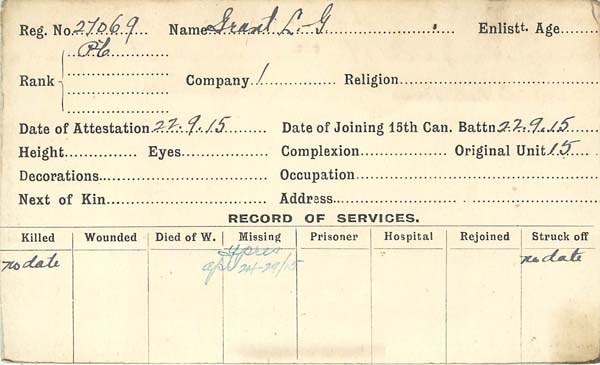 Reg. No. 27069 Name Grant L. G. Enlistt. Age
Pte
Rank Company 1 Religion
Date of Attestation 22.9.15 Date of Joining 15th Can. Battn 22.9.15
Height Eyes Complexion Original Unit 15
Decorations Occupation
Next of Kin Address
RECORD OF SERVICES.
Killed Wounded Died of W. Missing Prisoner Hospital Rejoined Struck off
Ypres
no date apl 24-29/15 no date